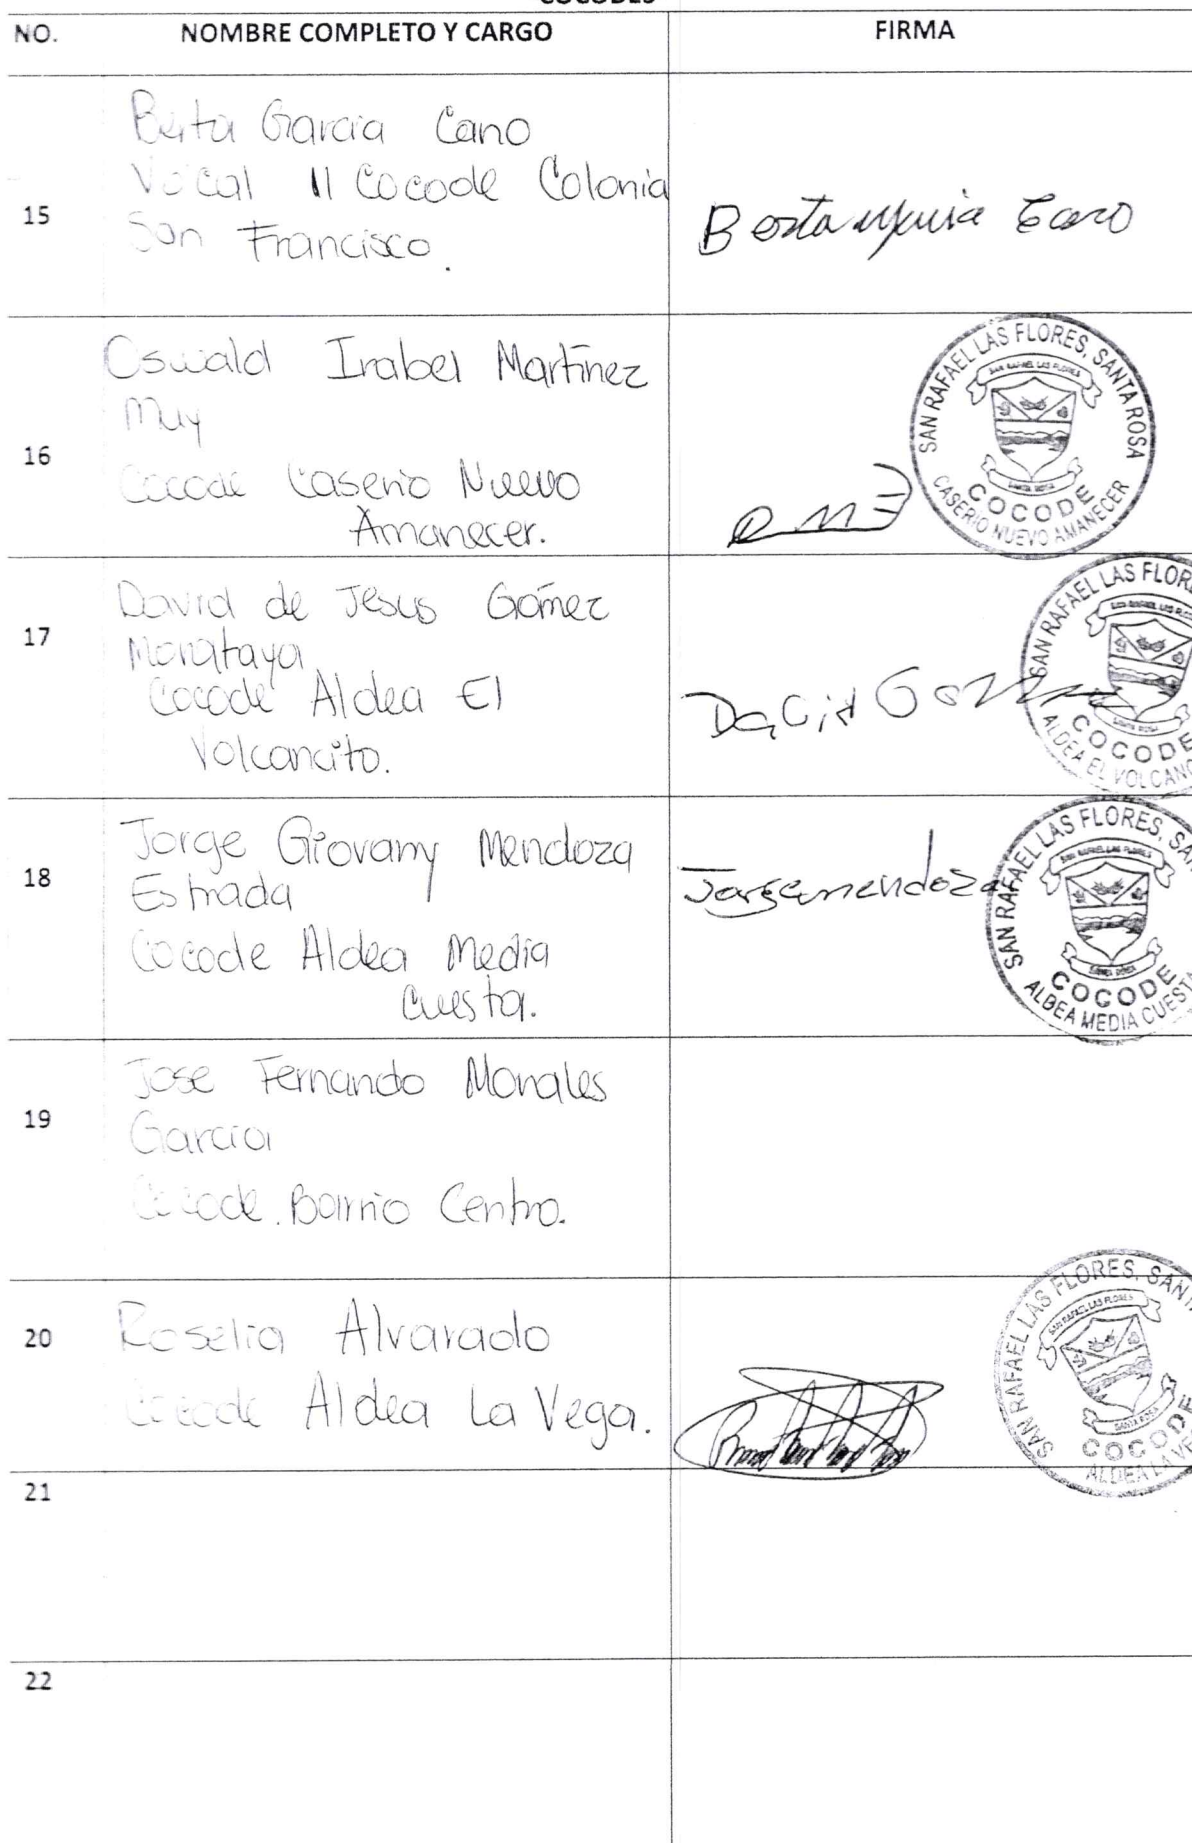 COCODES
NO. NOMBRE COMPLETO Y CARGO FIRMA
15
Berta Garcia Cano
Vocal II Cocode Colonia
San Francisco.
Berta
16
Oswald Irabel Martínez
Muy
Cocode Caserio Nuevo
Amanecer.
SAN RAFAEL LAS FLORES, SANTA ROSA
SAN RAFAEL LAS FLORES
SANTA ROSA
COCODE
CASERIO NUEVO AMANECER
17
David de Jesus Gómez
Morataya
Cocode Aldea El
Volcancito.
David
SAN RAFAEL LAS FLOR
SAN RAFAEL LAS FLO
SANTA ROSA
COCODE
ALDEA EL VOLCANC
18
Jorge Giovany Mendoza
Estrada
Cocode Aldea Media
Cuesta.
Jorge mendoza
SAN RAFAEL LAS FLORES, SAN
SAN RAFAEL LAS FLORES
SANTA ROSA
COCODE
ALDEA MEDIA CUESTA
19
Jose Fernando Morales
Garcia
Cocode Barrio Centro.
20
Roselia Alvarado
Cocode Aldea La Vega.
SAN RAFAEL LAS FLORES, SANT
SAN RAFAEL LAS FLORES
SANTA ROSA
COCODE
ALDEA LA VE
21
22